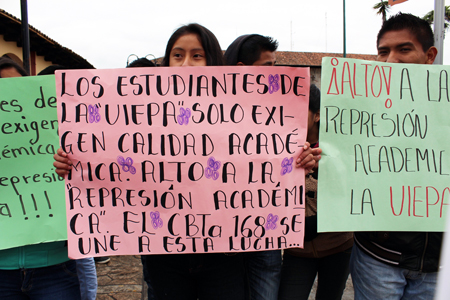 es de
exigen
démica
represi
a !!!
LOS ESTUDIANTES DE
LA "UIEPA" SOLO EXI-
GEN CALIDAD ACADÉ-
MICA. ALTO A LA
"REPRESIÓN ACADÉMI
CA". EL CBTa 168 SE
UNE A ESTA LUCHA...
¡ALTO! A LA
REPRESIÓN
ACADEMIC
LA UIEPA